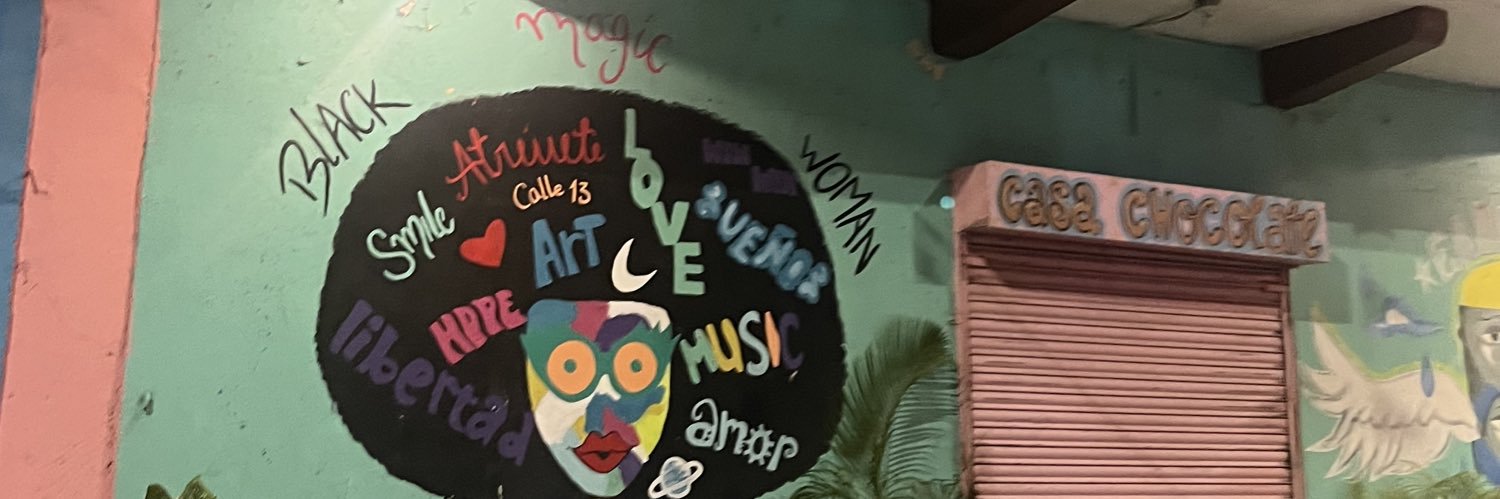 magic
BLACK
WOMAN
Atrévete
Calle 13
LOVE
Smile
ArT
SUEÑOS
HOPE
MUSIC
libertad
amor
casa CHOCOLate